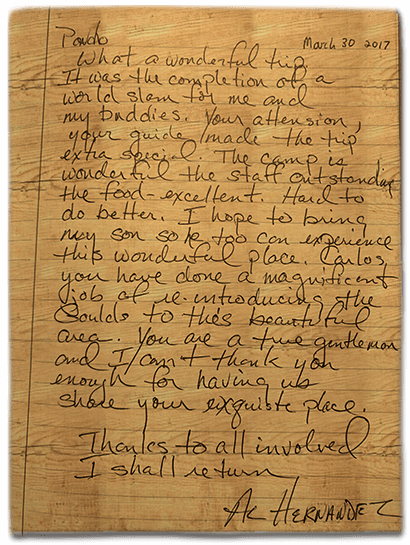 March 30 2017
What a wonderful trip.
It was the completion of a
world slam for me and
my buddies. Your attension,
your guide made the trip
extra special. The camp is
wonderful the staff outstanding
the food-excellent. Hard to
do better. I hope to bring
my son so he too can experience
this wonderful place. Carlos,
you have done a magnificent
job of re-introducing the
Goulds to this beautiful
area. You are a true gentleman
and I can't thank you
enough for having us
share your exquiste place.
Thanks to all involved
I shall return
HERNANDEZ